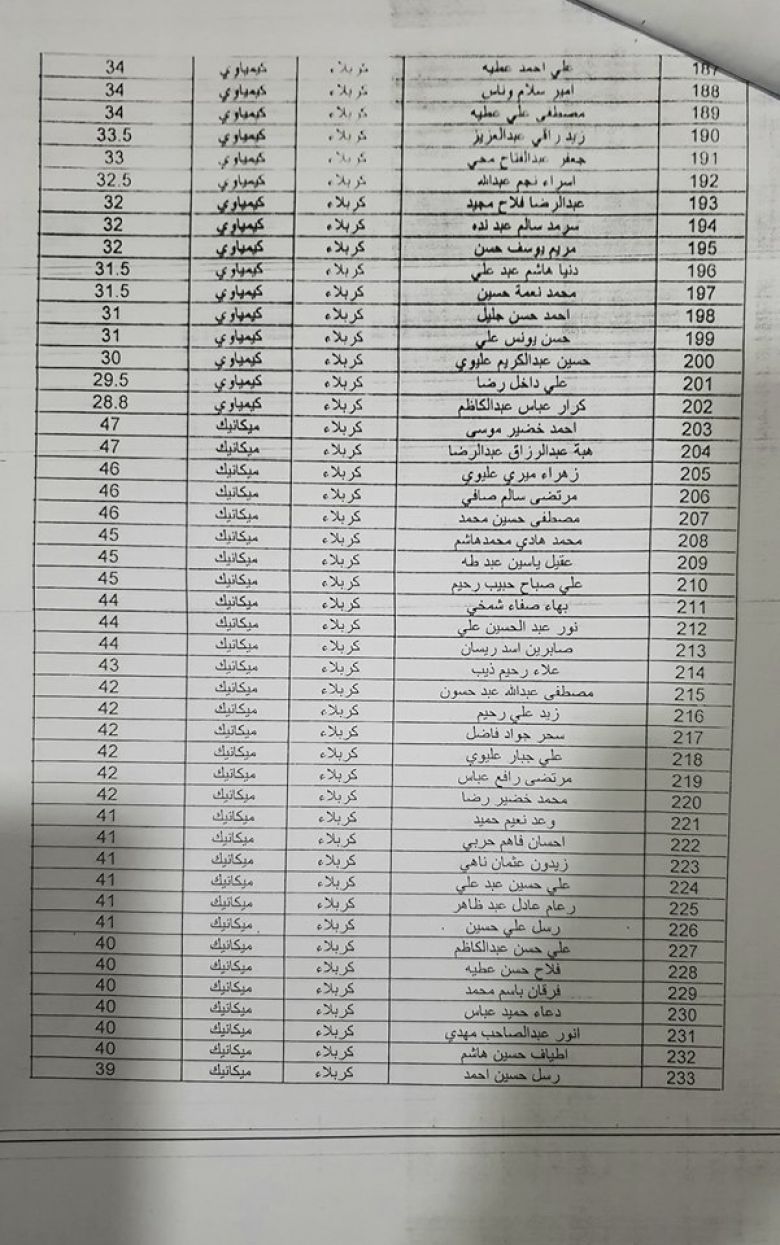 187 علي احمد عطيه كربلاء كيمياوي 34
188 امير سلام وناس كربلاء كيمياوي 34
189 مصطفى علي عطيه كربلاء كيمياوي 34
190 زيد راقي عبدالعزيز كربلاء كيمياوي 33.5
191 جعفر عبدالفتاح محي كربلاء كيمياوي 33
192 اسراء نجم عبدالله كربلاء كيمياوي 32.5
193 عبدالرضا فلاح مجيد كربلاء كيمياوي 32
194 سرمد سالم عبد نده كربلاء كيمياوي 32
195 مريم يوسف حسن كربلاء كيمياوي 32
196 دنيا هاشم عبد علي كربلاء كيمياوي 31.5
197 محمد نعمة حسين كربلاء كيمياوي 31.5
198 احمد حسن جليل كربلاء كيمياوي 31
199 حسن يونس علي كربلاء كيمياوي 31
200 حسين عبدالكريم عليوي كربلاء كيمياوي 30
201 علي داخل رضا كربلاء كيمياوي 29.5
202 كرار عباس عبدالكاظم كربلاء كيمياوي 28.8
203 احمد خضير موسى كربلاء ميكانيك 47
204 هبة عبدالرزاق عبدالرضا كربلاء ميكانيك 47
205 زهراء ميري عليوي كربلاء ميكانيك 46
206 مرتضى سالم صافي كربلاء ميكانيك 46
207 مصطفى حسين محمد كربلاء ميكانيك 46
208 محمد هادي محمدهاشم كربلاء ميكانيك 45
209 عقيل ياسين عبد طه كربلاء ميكانيك 45
210 علي صباح حبيب رحيم كربلاء ميكانيك 45
211 بهاء صفاء شمخي كربلاء ميكانيك 44
212 نور عبد الحسين علي كربلاء ميكانيك 44
213 صابرين اسد ريسان كربلاء ميكانيك 44
214 علاء رحيم ذيب كربلاء ميكانيك 43
215 مصطفى عبدالله عبد حسون كربلاء ميكانيك 42
216 زيد علي رحيم كربلاء ميكانيك 42
217 سحر جواد فاضل كربلاء ميكانيك 42
218 علي جبار عليوي كربلاء ميكانيك 42
219 مرتضى رافع عباس كربلاء ميكانيك 42
220 محمد خضير رضا كربلاء ميكانيك 42
221 وعد نعيم حميد كربلاء ميكانيك 41
222 احسان فاهم حربي كربلاء ميكانيك 41
223 زيدون عثمان ناهي كربلاء ميكانيك 41
224 علي حسين عبد علي كربلاء ميكانيك 41
225 رعام عادل عبد ظاهر كربلاء ميكانيك 41
226 رسل علي حسين كربلاء ميكانيك 41
227 علي حسن عبدالكاظم كربلاء ميكانيك 40
228 فلاح حسن عطيه كربلاء ميكانيك 40
229 فرقان باسم محمد كربلاء ميكانيك 40
230 دعاء حميد عباس كربلاء ميكانيك 40
231 انور عبدالصاحب مهدي كربلاء ميكانيك 40
232 اطياف حسين هاشم كربلاء ميكانيك 40
233 رسل حسين احمد كربلاء ميكانيك 39